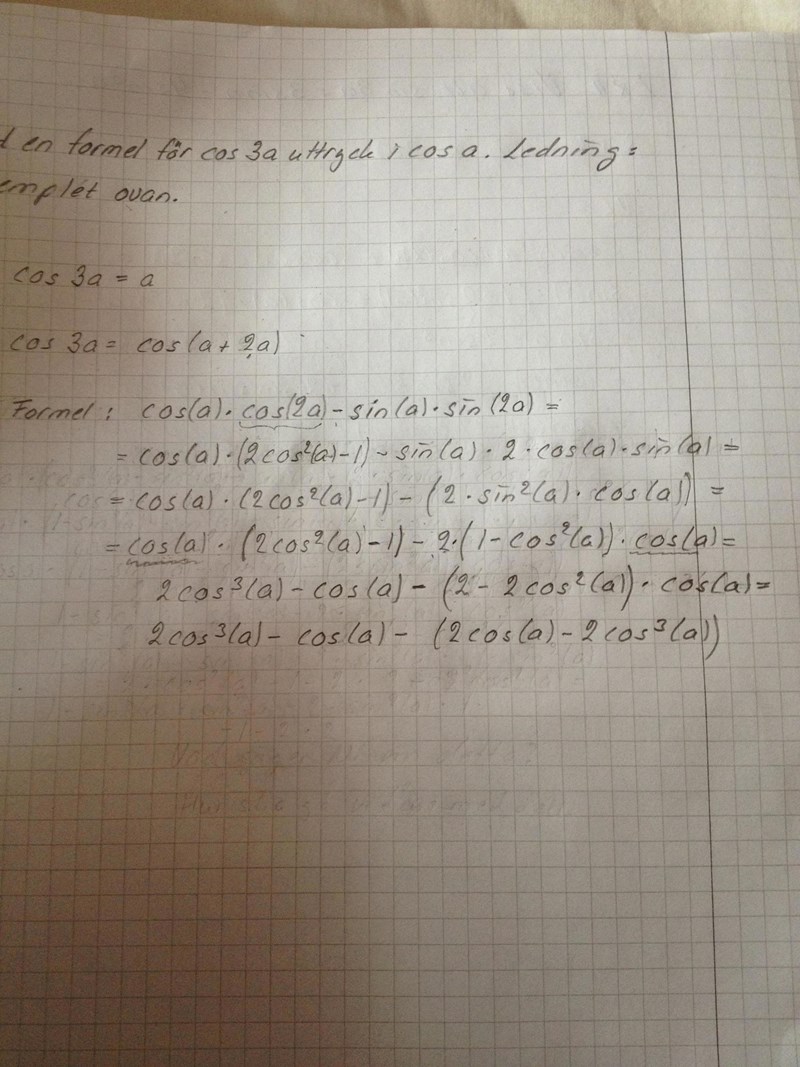 en formel för cos 3a uttryck i cos a. Ledning:
ovan.
cos 3a = a
cos 3a = cos(a + 2a)
Formel: cos(a)·cos(2a) - sin(a)·sin(2a) =
= cos(a)·(2cos²(a)-1) - sin(a)·2·cos(a)·sin(a) =
= cos(a)·(2cos²(a)-1) - (2·sin²(a)·cos(a)) =
= cos(a)·(2cos²(a)-1) - 2·(1-cos²(a))·cos(a) =
2cos³(a) - cos(a) - (2 - 2cos²(a))·cos(a) =
2cos³(a) - cos(a) - (2cos(a) - 2cos³(a))